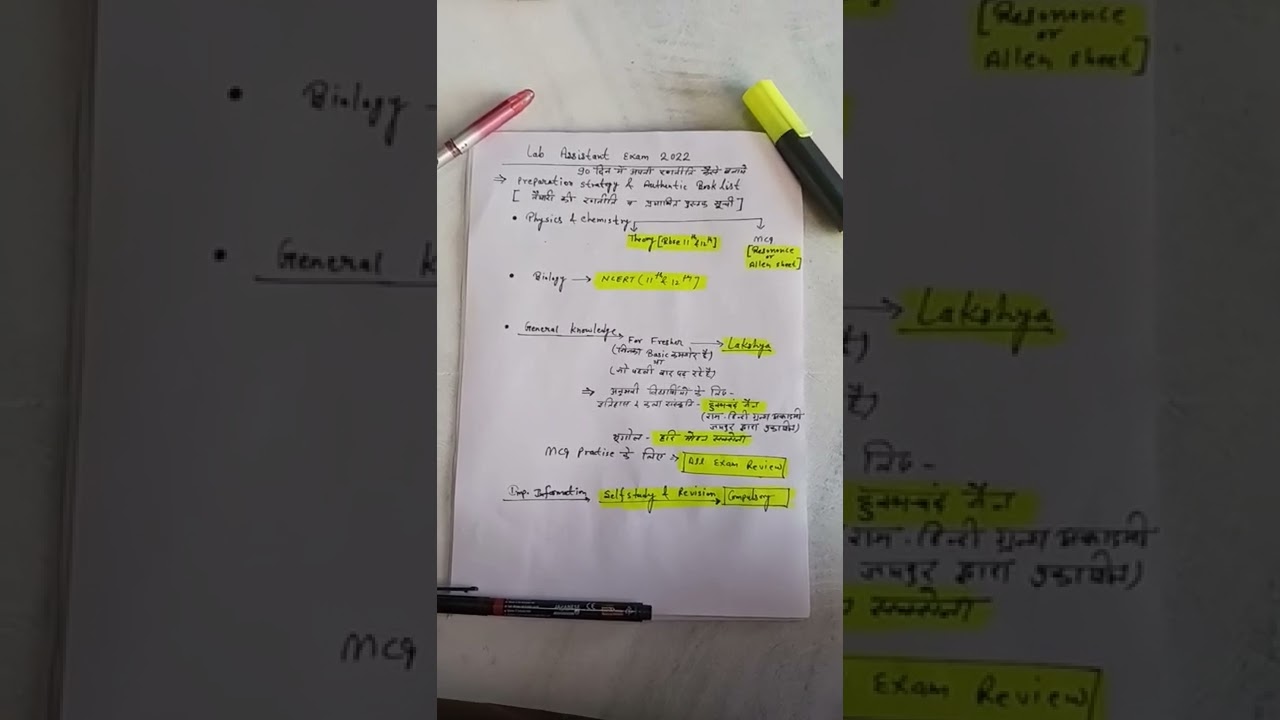 Lab Assistant Exam 2022
90 दिन में अपनी रणनीति कैसे बनाये
⇒ Preparation strategy & Authentic Book list
[ तैयारी की रणनीति व प्रमाणित पुस्तक सूची ]
• Physics & chemistry
Theory [Rbse 11th & 12th]
MCQ
[Resonance
or
Allen sheet]
• Biology → NCERT (11th & 12th)
• General knowledge
For Fresher → Lakshya
(जिनका Basic कमजोर है)
या
(जो पहली बार पढ़ रहे है)
⇒ अनुभवी विद्यार्थियों के लिए -
इतिहास & कला संस्कृति - हुकमचंद जैन
(राज. हिन्दी ग्रन्थ अकादमी
जयपुर द्वारा प्रकाशित)
भूगोल - हरि मोहन सक्सेना
MCQ Practise के लिए → All Exam Review
Imp. Information → Self study & Revision → Compulsory
[Resonance
or
Allen sheet]
• Biology -
• General K
→ Lakshya
लिए -
हुकमचंद जैन
राज. हिन्दी ग्रन्थ अकादमी
जयपुर द्वारा प्रकाशित)
सक्सेना
MCQ
Exam Review